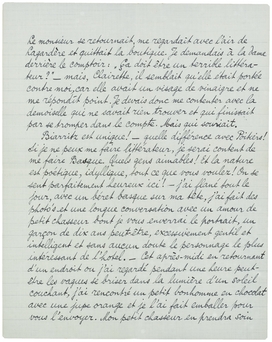 Le monsieur se retournait, me regardait avec l'air de
Lagardère et quittait la boutique. Je demandais à la dame
derrière le comptoir, "Ça doit être un terrible littéra-
teur?" — mais, Clairette, il semblait qu'elle était portée
contre moi, car elle avait un visage de vinaigre et ne
me répondait point. Je devais donc me contenter avec la
demoiselle qui ne savait rien trouver et qui finissait
par se tromper dans le compte. mais qui souriait.
Biarritz est unique! — quelle différence avec Poitiers!
si je ne peux me faire littérateur, je serai content de
me faire Basque. Quels gens aimables! Et la nature
est poétique, idyllique, tout ce que vous voulez! On se
sent parfaitement heureux ici! — j'ai flané tout le
jour, avec un beret basque sur ma tête, j'ai fait des
photo's et une longue conversation avec un amour de
petit chasseur dont je vous enverrai le portrait, un
garçon de dix ans peut-être, excessivement gentil et
intelligent et sans aucun doute le personnage le plus
intéressant de l'hôtel. — Cet après-midi en retournant
d'un endroit où j'ai regardé pendant une heure peut-
être les vagues se briser dans la lumière d'un soleil
couchant, j'ai rencontré un petit bonhomme en chocolat
avec une jupe orange et je l'ai fait emballer pour
vous l'envoyer. Mon petit chasseur en prendra soin